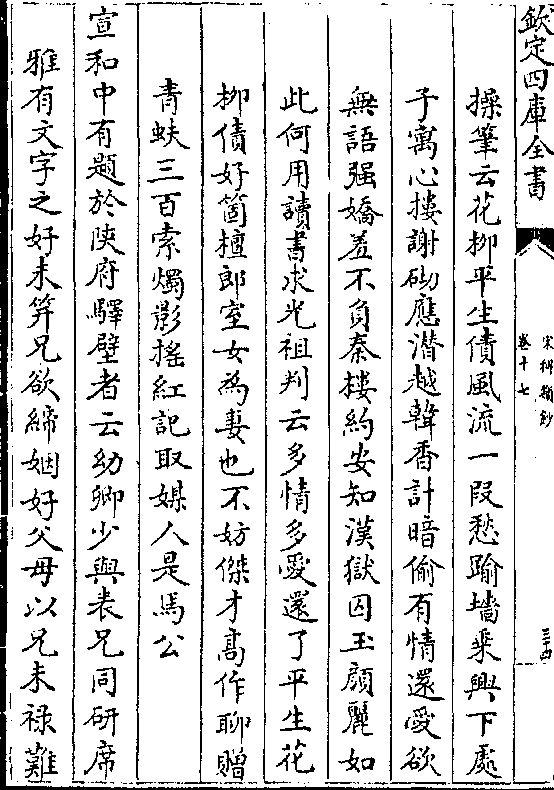 欽定四庫全書
宋稗類鈔
卷十七
三十四
操筆云花柳平生債風流一段愁踰墻乗興下處
子寓心摟謝砌應潜越韓香計暗偷有情還愛欲
無語强嬌羞不負秦樓約安知漢獄囚玉顔麗如
此何用讀書求光祖判云多情多愛還了平生花
柳債好箇檀郎室女為妻也不妨傑才高作聊贈
青蚨三百索燭影揺紅記取媒人是馬公
宣和中有題於陜府驛壁者云幼卿少與表兄同研席
雅有文字之好未筓兄欲締姻好父母以兄未禄難